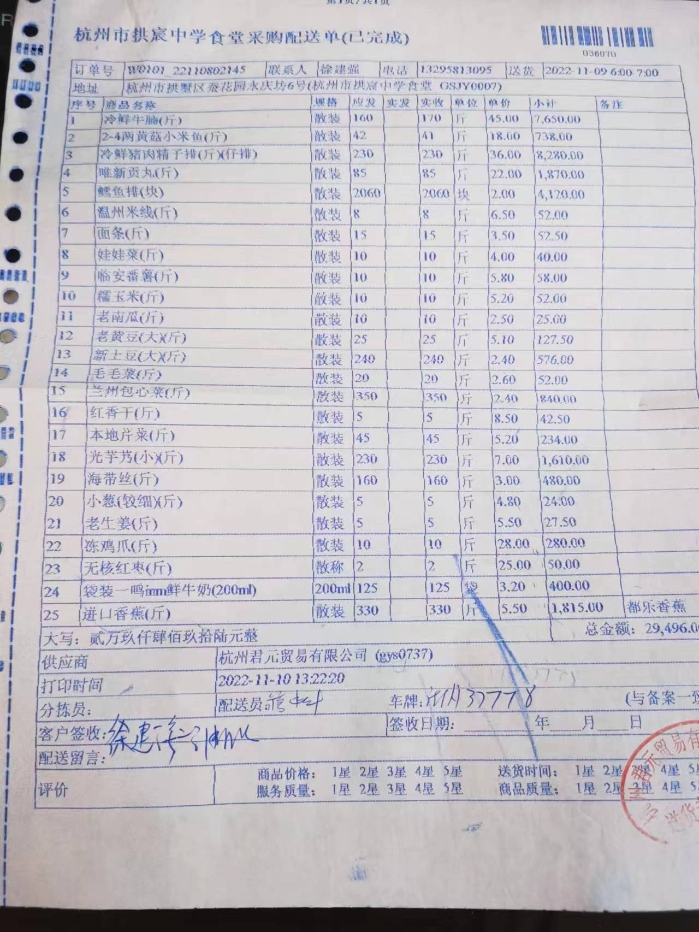 第1页/共1页
杭州市拱宸中学食堂采购配送单(已完成)
036070
订单号 W0101_22110802145 联系人 徐建强 电话 13295813095 送货 2022-11-09 6:00-7:00
地址 杭州市拱墅区葵花园永庆坊6号(杭州市拱宸中学食堂 GSJY0007)
序号 商品名称 规格 应发 实发 实收 单位 单价 小计 备注
1 冷鲜牛腩(斤) 散装 160 170 斤 45.00 7,650.00
2 2-4两黄菇小米鱼(斤) 散装 42 41 斤 18.00 738.00
3 冷鲜猪肉精子排(斤)(仔排) 散装 230 230 斤 36.00 8,280.00
4 唯新贡丸(斤) 散装 85 85 斤 22.00 1,870.00
5 鳕鱼排(块) 散装 2060 2060 块 2.00 4,120.00
6 温州米线(斤) 散装 8 8 斤 6.50 52.00
7 面条(斤) 散装 15 15 斤 3.50 52.50
8 娃娃菜(斤) 散装 10 10 斤 4.00 40.00
9 临安番薯(斤) 散装 10 10 斤 5.80 58.00
10 糯玉米(斤) 散装 10 10 斤 5.20 52.00
11 老南瓜(斤) 散装 10 10 斤 2.50 25.00
12 老黄豆(大)(斤) 散装 25 25 斤 5.10 127.50
13 新土豆(大)(斤) 散装 240 240 斤 2.40 576.00
14 毛毛菜(斤) 散装 20 20 斤 2.60 52.00
15 兰州包心菜(斤) 散装 350 350 斤 2.40 840.00
16 红香干(斤) 散装 5 5 斤 8.50 42.50
17 本地芹菜(斤) 散装 45 45 斤 5.20 234.00
18 光芋艿(小)(斤) 散装 230 230 斤 7.00 1,610.00
19 海带丝(斤) 散装 160 160 斤 3.00 480.00
20 小葱(较细)(斤) 散装 5 5 斤 4.80 24.00
21 老生姜(斤) 散装 5 5 斤 5.50 27.50
22 冻鸡爪(斤) 散装 10 10 斤 28.00 280.00
23 无核红枣(斤) 散称 2 2 斤 25.00 50.00
24 袋装一鸣imm鲜牛奶(200ml) 200ml 125 125 袋 3.20 400.00
25 进口香蕉(斤) 散装 330 330 斤 5.50 1,815.00 都乐香蕉
大写：贰万玖仟肆佰玖拾陆元整 总金额：29,496.0
供应商 杭州君元贸易有限公司 (gys0737)
打印时间 2022-11-10 13:22:20
分拣员： 配送员： 车牌： (与备案一致
客户签收： 徐建 签收日期： 年 月 日
配送留言：
评价 商品价格： 1星 2星 3星 4星 5星 送货时间： 1星 2星 3星 4星 5
服务质量： 1星 2星 3星 4星 5星 商品质量： 1星 2星 3星 4星 5
州君元贸易有
送货